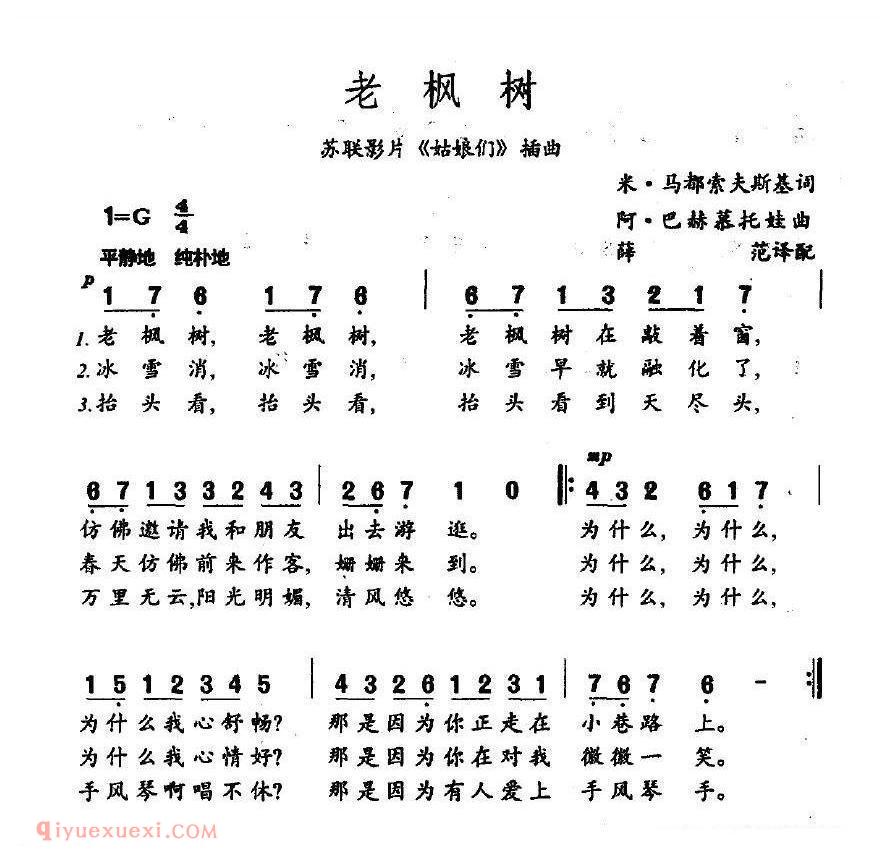 老枫树
苏联影片《姑娘们》插曲
米·马都索夫斯基词
1=G 4/4
阿·巴赫慕托娃曲
平静地 纯朴地
薛 范译配
p
1 7 6 1 7 6 | 6 7 1 3 2 1 7 |
1.老枫树, 老枫树, 老枫树在敲着窗,
2.冰雪消, 冰雪消, 冰雪早就融化了,
3.抬头看, 抬头看, 抬头看到天尽头,
mp
6 7 1 3 3 2 4 3 | 2 6 7 1 0 |: 4 3 2 6 1 7 |
仿佛邀请我和朋友 出去游逛。 为什么, 为什么,
春天仿佛前来作客, 姗姗来到。 为什么, 为什么,
万里无云,阳光明媚, 清风悠悠。 为什么, 为什么,
1 5 1 2 3 4 5 | 4 3 2 6 1 2 3 1 | 7 6 7 6 - :|
为什么我心舒畅? 那是因为你正走在 小巷路上。
为什么我心情好? 那是因为你在对我 微微一笑。
手风琴啊唱不休? 那是因为有人爱上 手风琴手。
qiyuexuexi.com